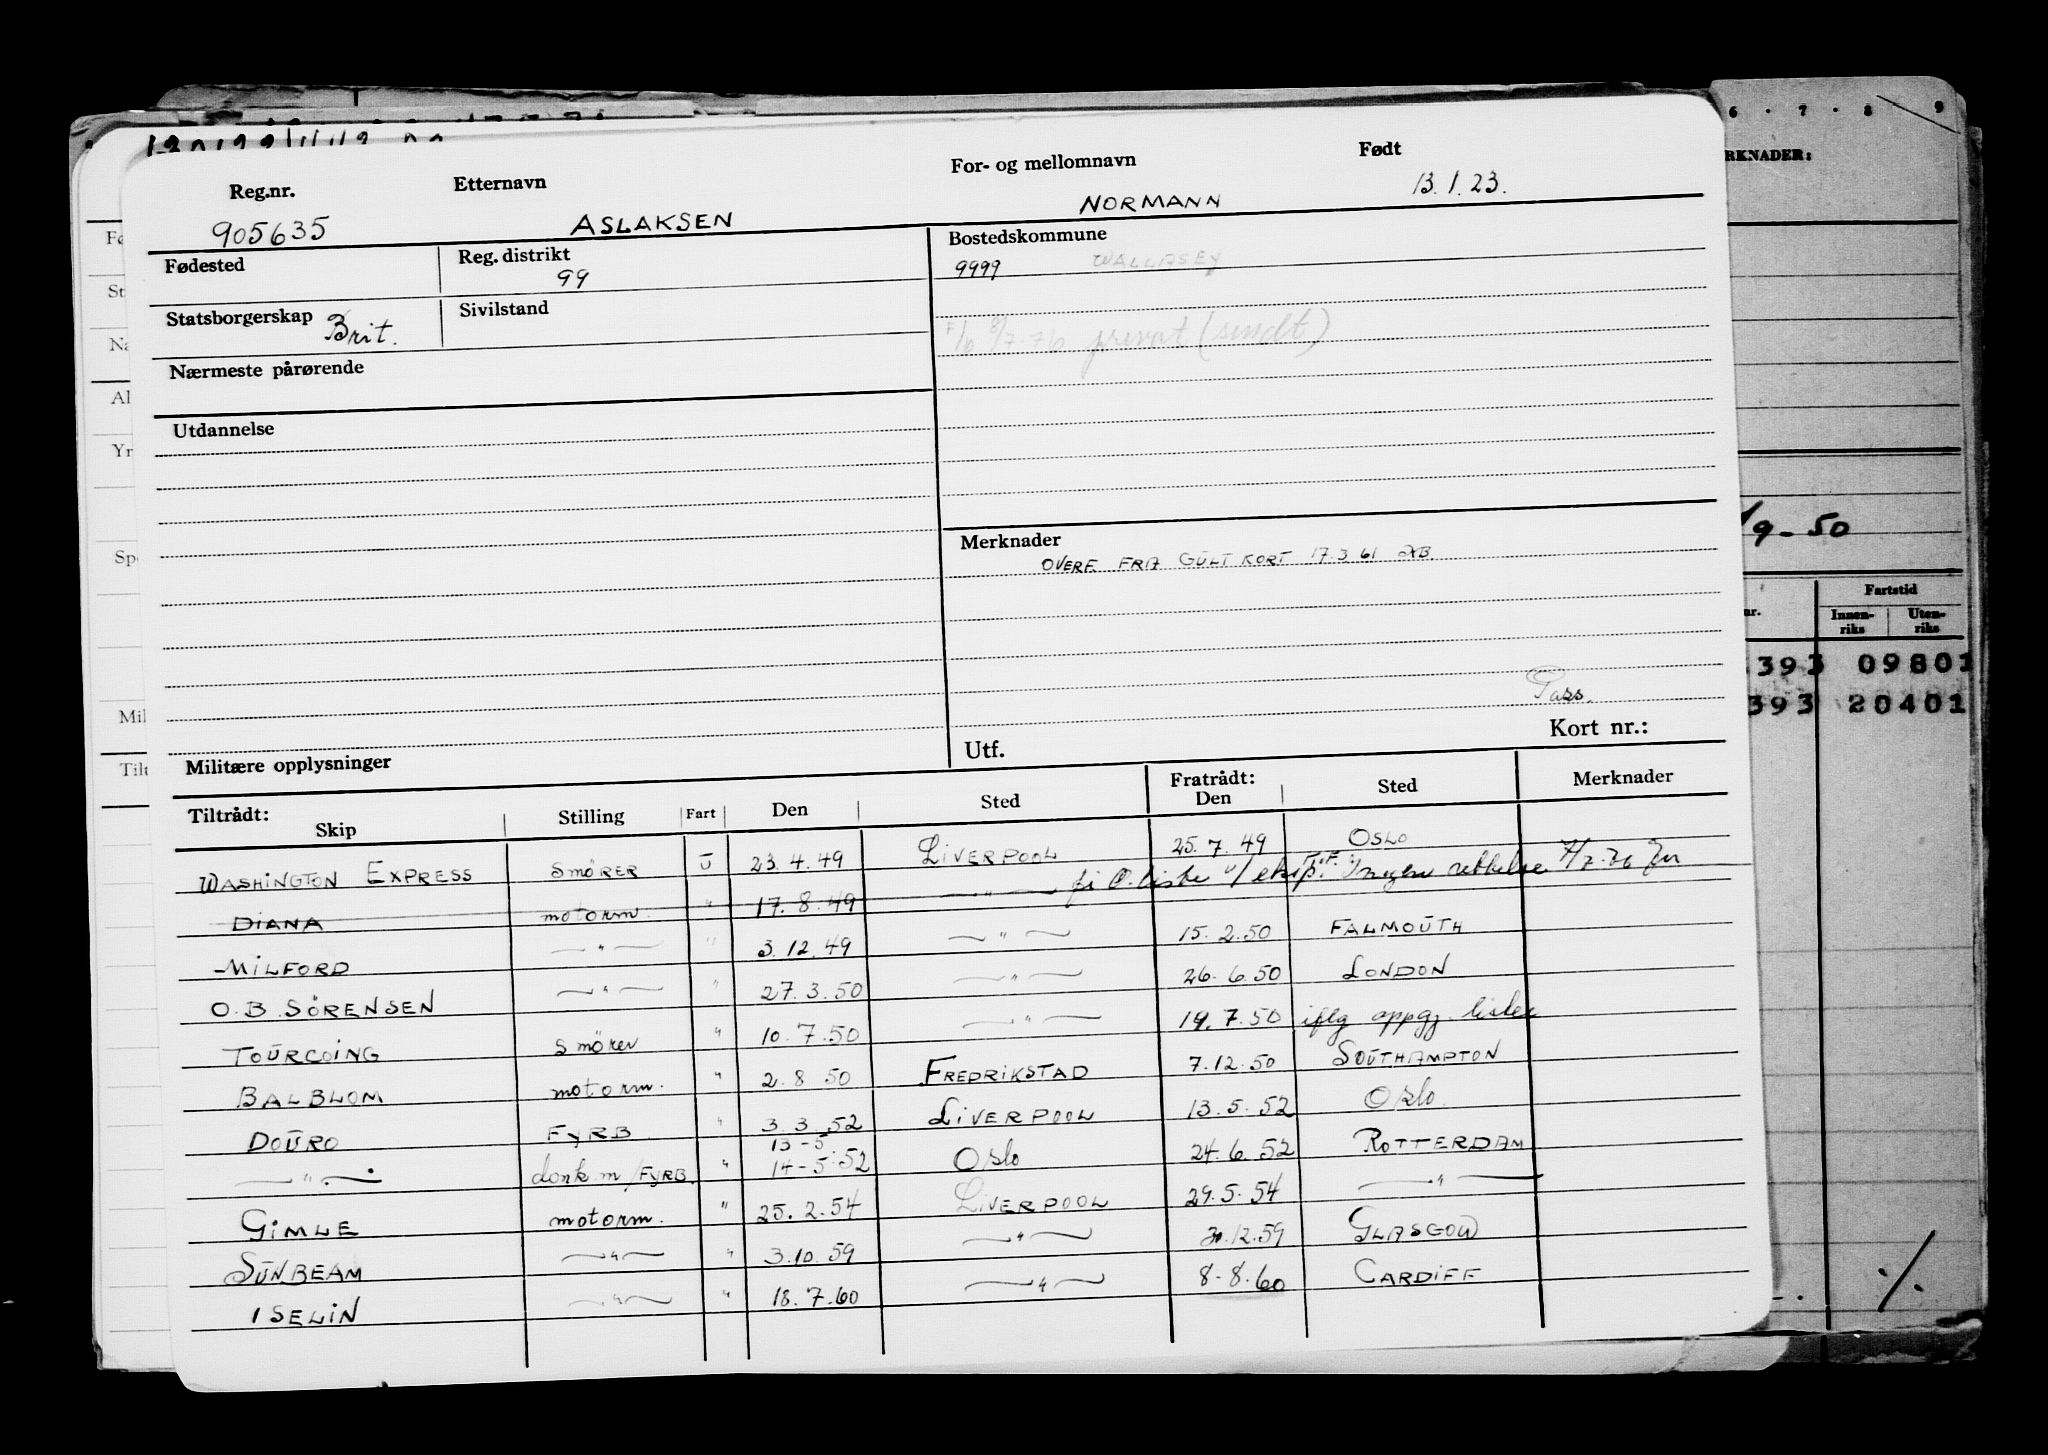 Reg.nr. Etternavn For- og mellomnavn Født
905635 ASLAKSEN NORMANN 13.1.23.
Fødested Reg. distrikt 99 Bostedskommune
9999 WALLASEY
Statsborgerskap Brit. Sivilstand
8/7-76 privat (sendt)
Nærmeste pårørende
Utdannelse
Merknader
OVERF. FRA GULT KORT 17.3.61
Pass.
Militære opplysninger Utf. Kort nr.:
Tiltrådt: Skip Stilling Fart Den Sted Fratrådt: Den Sted Merknader
WASHINGTON EXPRESS SMÖRER U 23.4.49 LIVERPOOL 25.7.49 OSLO
DIANA motorm. " 17.8.49 —"— Ingen rettelse 7/7-76
MILFORD —"— " 3.12.49 —"— 15.2.50 FALMOUTH
O.B. SÖRENSEN —"— " 27.3.50 —"— 26.6.50 LONDON
TOURCOING Smörer " 10.7.50 —"— 19.7.50 iflg oppgj. lister
BALBLOM motorm. " 2.8.50 FREDRIKSTAD 7.12.50 SOUTHAMPTON
DOURO FYRB " 3.3.52 LIVERPOOL 13.5.52 Oslo.
13-5
—"— donk m/FYRB. " 14-5.52 Oslo 24.6.52 ROTTERDAM
GIMLE motorm. " 25.2.54 LIVERPOOL 29.5.54 —"—
SUNBEAM —"— " 3.10.59 —"— 12.59 GLASGOW
ISELIN —"— " 18.7.60 —"— 8-8.60 CARDIFF
6 · 7 · 8 9
RKNADER:
/9-50
nr. Fartstid
Innen-riks Uten-riks
393 09801
393 20401
Fø
St
Na
Al
Yr
Sp
Mil
Tilt